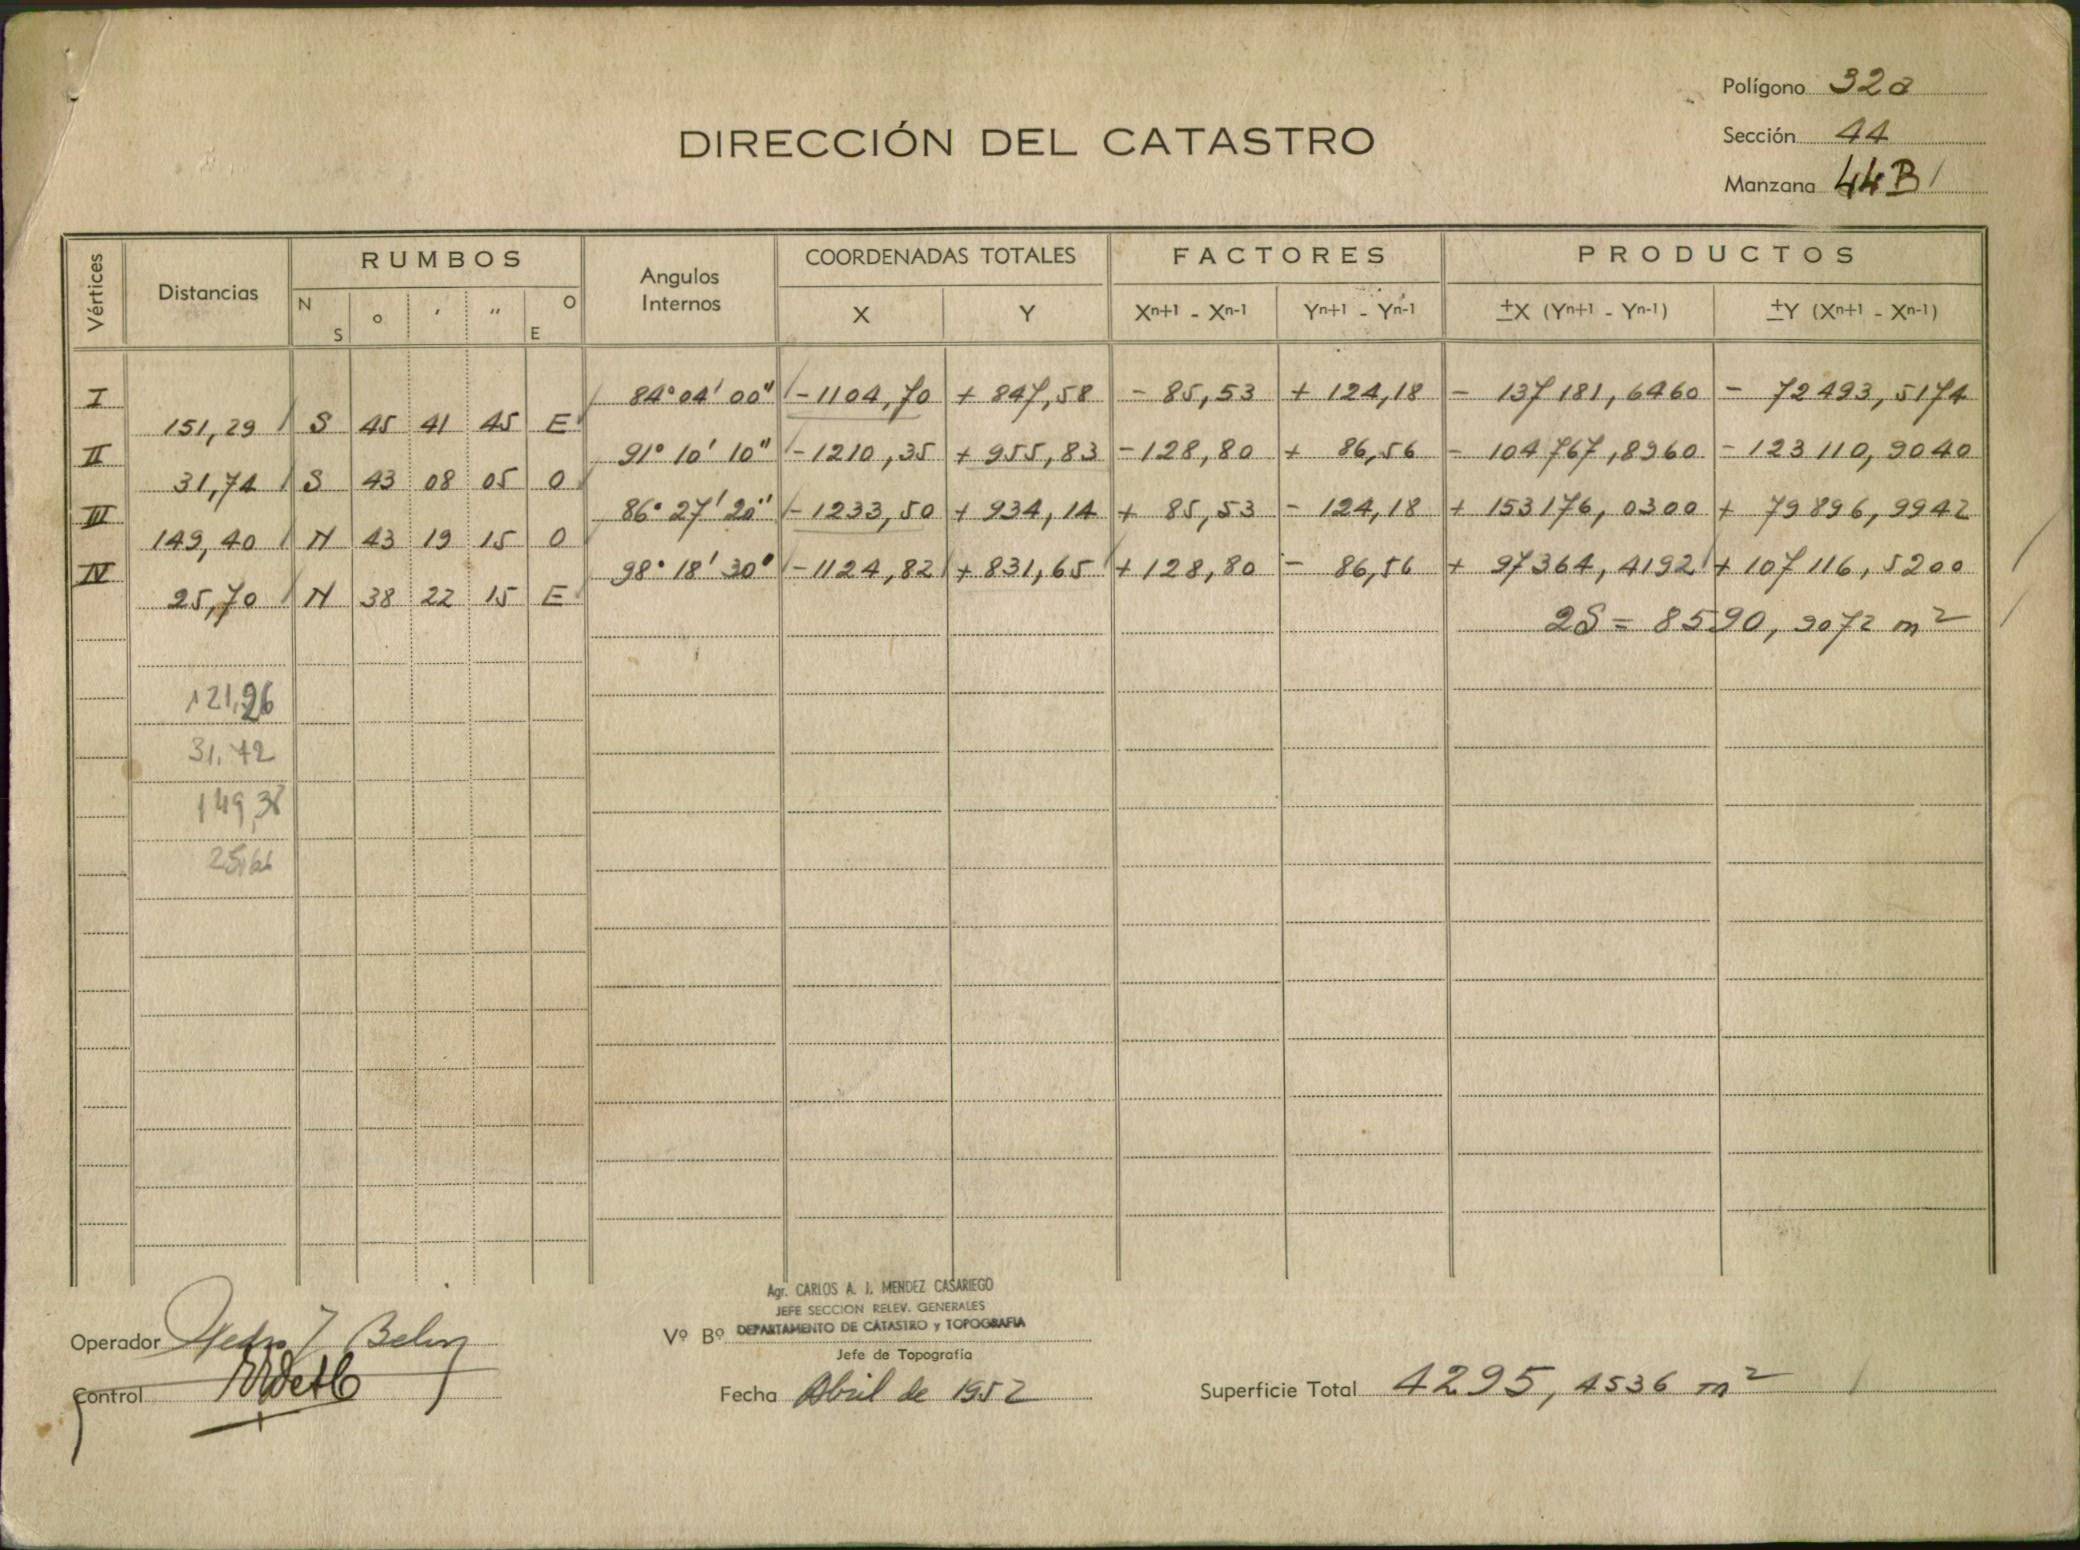 Polígono 32a
DIRECCIÓN DEL CATASTRO
Sección 44
Manzana 44B
Vértices Distancias RUMBOS Angulos Internos COORDENADAS TOTALES FACTORES PRODUCTOS
N S o ' " O E X Y Xn+1 - Xn-1 Yn+1 - Yn-1 ±X (Yn+1 - Yn-1) ±Y (Xn+1 - Xn-1)
I 84° 04' 00" -1104,70 + 847,58 - 85,53 + 124,18 - 137 181,6460 - 72 493,5174
151,29 S 45 41 45 E
II 91° 10' 10" -1210,35 + 955,83 -128,80 + 86,56 - 104 767,8960 - 123 110,9040
31,74 S 43 08 05 O
III 86° 27' 20" -1233,50 + 934,14 + 85,53 - 124,18 + 153 176,0300 + 79 896,9942
149,40 N 43 19 15 O
IV 98° 18' 30" -1124,82 + 831,65 +128,80 - 86,56 + 97 364,4192 + 107 116,5200
25,70 N 38 22 15 E
2S = 8590,9072 m²
121,26
31,72
149,38
25,66
Agr. CARLOS A. J. MENDEZ CASARIEGO
JEFE SECCION RELEV. GENERALES
Operador Pedro J Vº Bº DEPARTAMENTO DE CATASTRO y TOPOGRAFIA
Jefe de Topografía
Control Fecha Abril de 1952 Superficie Total 4295,4536 m²